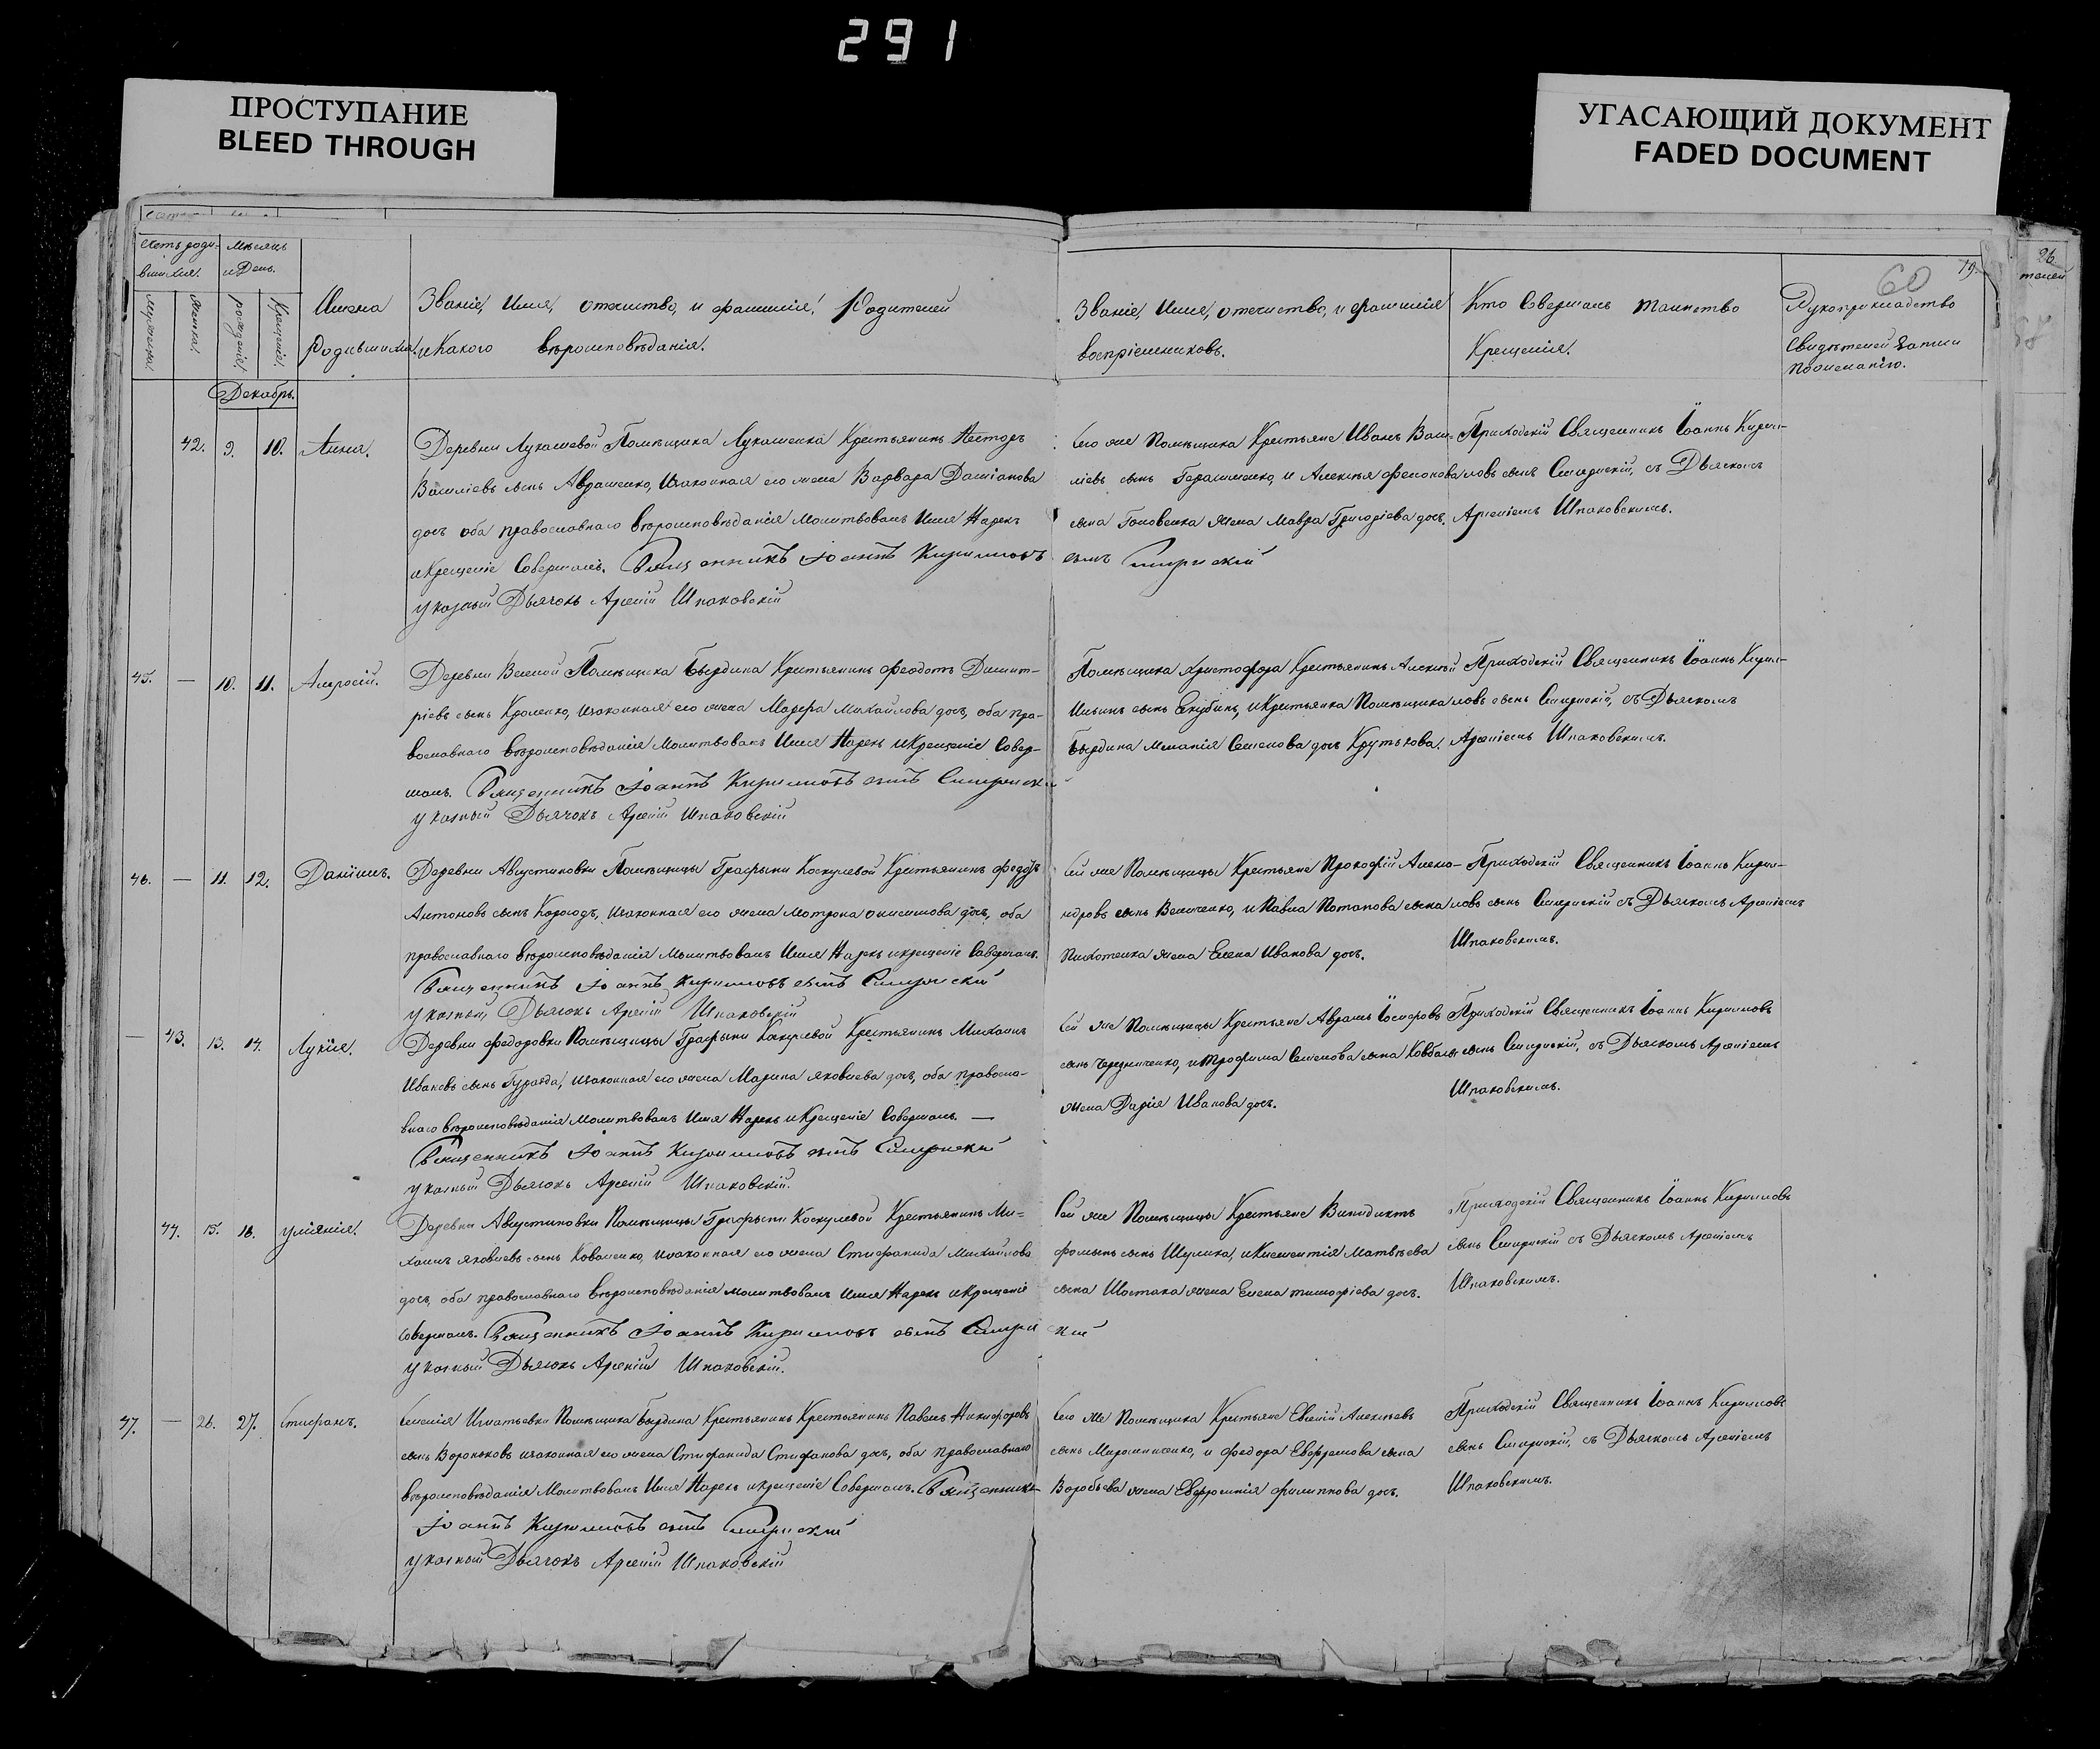 291
ПРОСТУПАНИЕ
BLEED THROUGH
УГАСАЮЩИЙ ДОКУМЕНТ
FADED DOCUMENT
26
19.
60
Счетъ роди-
вшихся.
Мѣсяцъ
и День.
рожденія.
Крещенія.
Имена
родившихся.
Званіе, Имя, отечество, и фамилія, Родителей
и Какого вѣроисповѣданія.
Званіе, Имя, отечество, и фамилія
воспріемниковъ.
Кто Совершалъ таинство
Крещенія.
Рукоприкладство
Свидѣтелей записи
по желанію.
Декабрь.
42. 9. 10. Анна.
Деревни Лукашевой Помѣщика Лукашенка Крестьянинъ Несторъ
Василіевъ сынъ Авраменко, изаконная его жена Варвара Даміанова
дочь оба православнаго вѣроисповѣданія Молитвовалъ Имя Нарекъ
и Крещеніе Совершалъ. Священникъ Іоаннъ Кирилловъ
сынъ
указный Дьячокъ Арсеній Шпаковскій
Его же Помѣщика Крестьяне Иванъ Васи-
ліевъ сынъ Герасименко, и Алексѣя
сына Головенка жена Мавра Григоріева дочь.
Приходскій Священникъ Іоаннъ Кирил-
ловъ сынъ съ Дьячкомъ
Арсеніемъ Шпаковскимъ.
45. — 10. 11. Амвросій.
Деревни Помѣщика Бырдина Крестьянинъ Феодотъ Димит-
ріевъ сынъ Кроленко, изаконная его жена Марфа Михайлова дочь, оба пра-
вославнаго вѣроисповѣданія Молитвовалъ Имя Нарекъ и Крещеніе Совер-
шалъ. Священникъ Іоаннъ Кирилловъ сынъ
указный Дьячокъ Арсеній Шпаковскій
Помѣщика Христофора Крестьянинъ Алексѣй
Ильинъ сынъ и Крестьянка Помѣщика
Бырдина Меланія Семенова дочь Крутькова.
Приходскій Священникъ Іоаннъ Кирил-
ловъ сынъ съ Дьячкомъ
Арсеніемъ Шпаковскимъ.
46. — 11. 12. Даніилъ.
Деревни Августиновки Помѣщицы Графыни Крестьянинъ Федоръ
Антоновъ сынъ изаконная его жена Мотрона Онисимова дочь, оба
православнаго вѣроисповѣданія Молитвовалъ Имя Нарекъ и крещеніе Совершалъ.
Священникъ Іоаннъ Кирилловъ сынъ
указный Дьячокъ Арсеній Шпаковскій
Ей же Помѣщицы Крестьяне Прокофій Алекса-
ндровъ сынъ Величенко, и Павла Потапова сына
жена Елена Иванова дочь.
Приходскій Священникъ Іоаннъ Кирил-
ловъ сынъ съ Дьячкомъ Арсеніемъ
Шпаковскимъ.
— 43. 13. 14. Лукія.
Деревни Федоровки Помѣщицы Графыни Крестьянинъ Михаилъ
Ивановъ сынъ изаконная его жена Марина Яковлева дочь, оба правосла-
внаго вѣроисповѣданія Молитвовалъ Имя Нарекъ и Крещеніе Совершалъ. —
Священникъ Іоаннъ Кирилловъ сынъ
указный Дьячокъ Арсеній Шпаковскій.
Ей же Помѣщицы Крестьяне Аврамъ Іосифовъ
сынъ Чередниченко, и Трофима Семенова сына
жена Дарія Иванова дочь.
Приходскій Священникъ Іоаннъ Кирилловъ
сынъ съ Дьячкомъ Арсеніемъ
Шпаковскимъ.
44. 15. 16. Уліянія.
Деревни Августиновки Помѣщицы Графыни Крестьянинъ Ми-
хаилъ Яковлевъ сынъ Коваленко, изаконная его жена Стифанида Михайлова
дочь, оба православнаго вѣроисповѣданія молитвовалъ Имя Нарекъ и Крещеніе
Совершалъ. Священникъ Іоаннъ Кирилловъ сынъ
указный Дьячокъ Арсеній Шпаковскій.
Ей же Помѣщицы Крестьяне Винидиктъ
сынъ Шулика, и Климентія Матвѣева
сына Шостака жена Елена Тимофіева дочь.
Приходскій Священникъ Іоаннъ Кирилловъ
сынъ съ Дьячкомъ Арсеніемъ
Шпаковскимъ.
47. — 26. 27. Стифанъ.
Селенія Игнатьевки Помѣщика Бырдина Крестьянинъ Крестьянинъ Павелъ Никифоровъ
сынъ Вороньковъ изаконная его жена Стифанида Стифанова дочь, оба православнаго
вѣроисповѣданія Молитвовалъ Имя Нарекъ и крещеніе Совершалъ. Священникъ
Іоаннъ Кирилловъ сынъ
указный Дьячокъ Арсеній Шпаковскій
Его же Помѣщика Крестьяне Евгеній Алексѣевъ
сынъ Мирошниченко, и Федора Ефремова сына
Воробьева жена Евфросинія Филиппова дочь.
Приходскій Священникъ Іоаннъ Кирилловъ
сынъ съ Дьячкомъ Арсеніемъ
Шпаковскимъ.